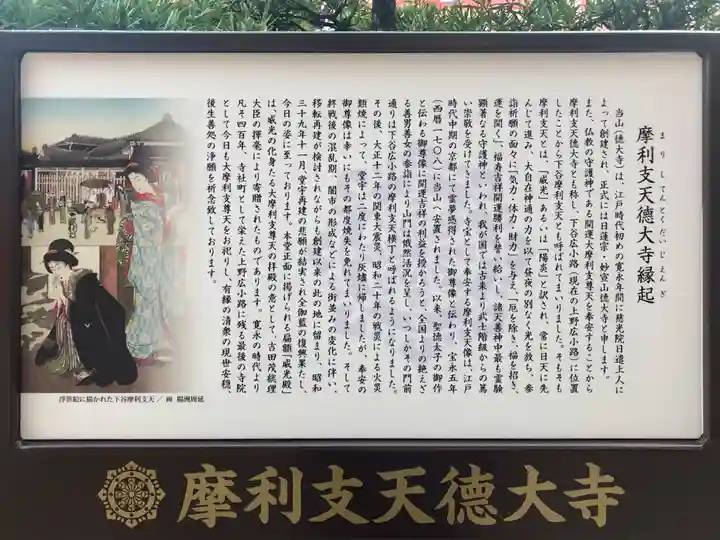 摩利支天徳大寺縁起
まりしてんとくだいじえんぎ
当山(徳大寺)は、江戸時代初めの寛永年間に慈光院日遣上人に
よって創建され、正式には日蓮宗・妙宣山徳大寺と申します。
また、仏教の守護神である開運大摩利支尊天を奉安することから
摩利支天徳大寺とも称し、下谷広小路(現在の上野広小路)に位置
したことから下谷摩利支天とも呼ばれてまいりました。そもそも
摩利支天とは、「威光」あるいは「陽炎」と訳され、常に日天に先
んじて進み、大自在神通の力を以て昼夜の別なく光を放ち、参
詣祈願の面々に「気力・体力・財力」を与え、「厄を除き、福を招き、
運を開く」、福寿吉祥開運勝利を誓い給いし、諸天善神中最も霊験
顕著なる守護神といわれ、我が国では古来より武士階級からの篤
い崇敬を受けてきました。寺宝として奉安する摩利支天像は、江戸
時代中期の京都にて霊夢感得された御尊像と伝わり、宝永五年
(西暦一七〇八)に当山へ安置されました。以来、聖徳太子の御作
と伝わる御尊像に開運吉祥の利益を授かろうと、全国よりの絶えざ
る善男善女の参詣により山門は俄然活況を呈し、いつしかその門前
通りは下谷広小路の摩利支天横丁と呼ばれるようになりました。
その後、大正十二年の関東大震災、昭和二十年の戦災による火災
類焼によって、堂宇は二度にわたり灰燼に帰しましたが、奉安の
御尊像は幸いにもその都度焼失を免れてまいりました。そして
終戦後の混乱期、闇市の形成などによる街並みの変化に伴い、
移転再建が検討されながらも創建以来の此の地に留まり、昭和
三十九年十一月、堂宇再建の悲願が結実され全伽藍の復興業たし、
今日の姿に至っております。本堂正面に掲げられる扁額「威光殿」
は、威光の化身たる大摩利支尊天の拝殿の意として、吉田茂総理
大臣の揮毫により寄贈されたものであります。寛永の時代より
凡そ四百年、寺社町として栄えた上野広小路に残る最後の寺院
として今日も大摩利支尊天をお祀りし、有縁の清衆の現世安穏、
後生善処の浄願を祈念致しております。
浮世絵に描かれた下谷摩利支天/画 楊洲周延
摩利支天徳大寺